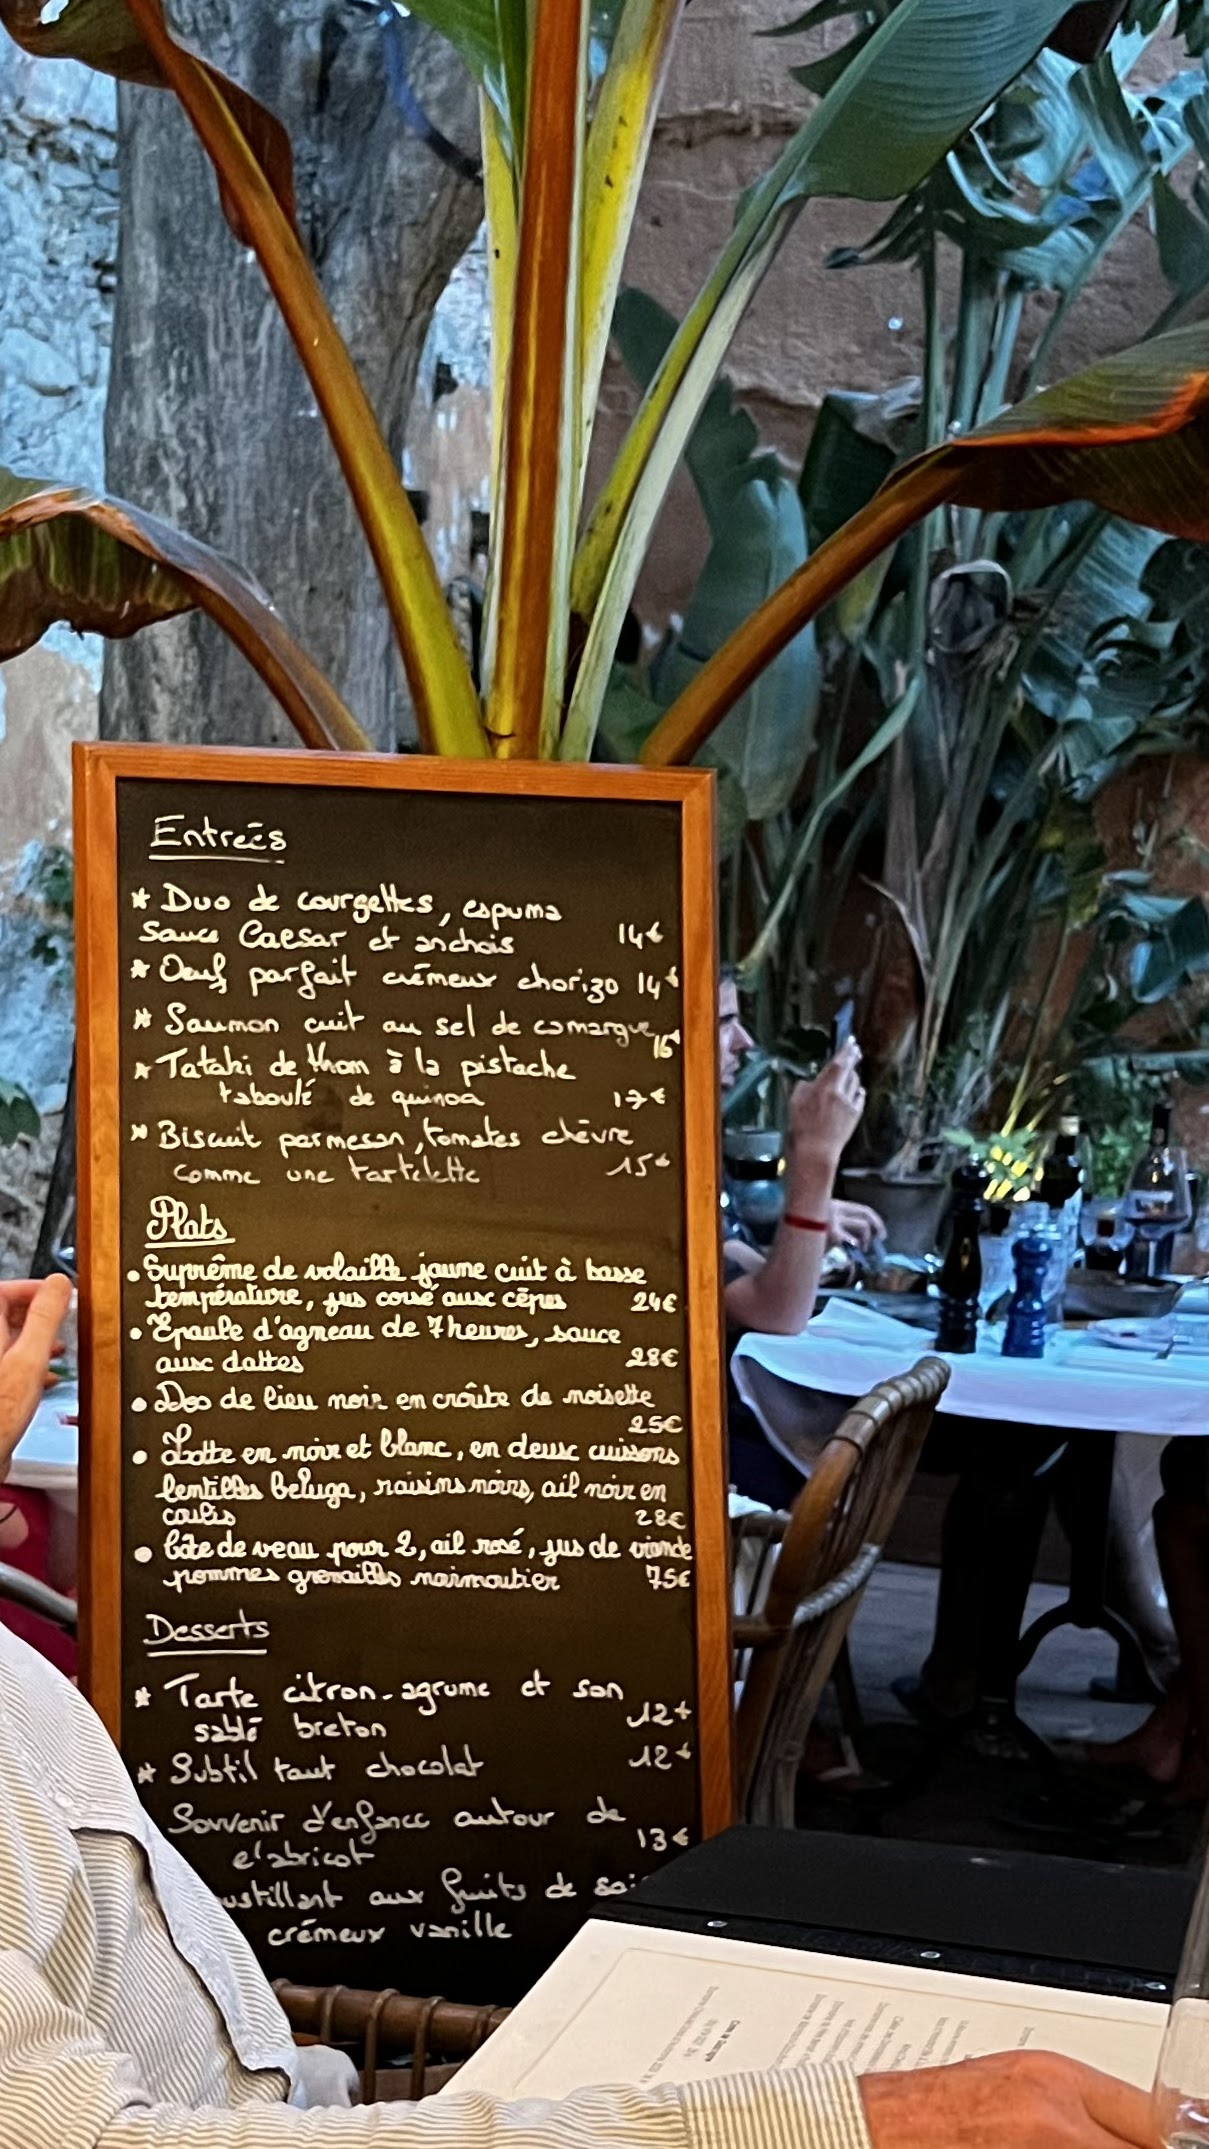 Entrées
* Duo de courgettes, espuma
Sauce Caesar et anchois 14€
* Oeuf parfait crémeux chorizo 14€
* Saumon cuit au sel de camargue 16€
* Tataki de thon à la pistache
taboulé de quinoa 17€
* Biscuit parmesan, tomates chèvre
comme une tartelette 15€
Plats
• Suprême de volaille jaune cuit à basse
température, jus corsé aux cèpes 24€
• Epaule d'agneau de 7 heures, sauce
aux dattes 28€
• Dos de lieu noir en croûte de noisette
25€
• Lotte en noir et blanc, en deux cuissons
lentilles beluga, raisins noirs, ail noir en
coulis 28€
• Côte de veau pour 2, ail rosé, jus de viande
pommes grenailles noirmoutier 75€
Desserts
* Tarte citron-agrume et son
sablé breton 12€
* Subtil tout chocolat 12€
Souvenir d'enfance autour de
l'abricot 13€
ustillant aux fruits de sai
crémeux vanille